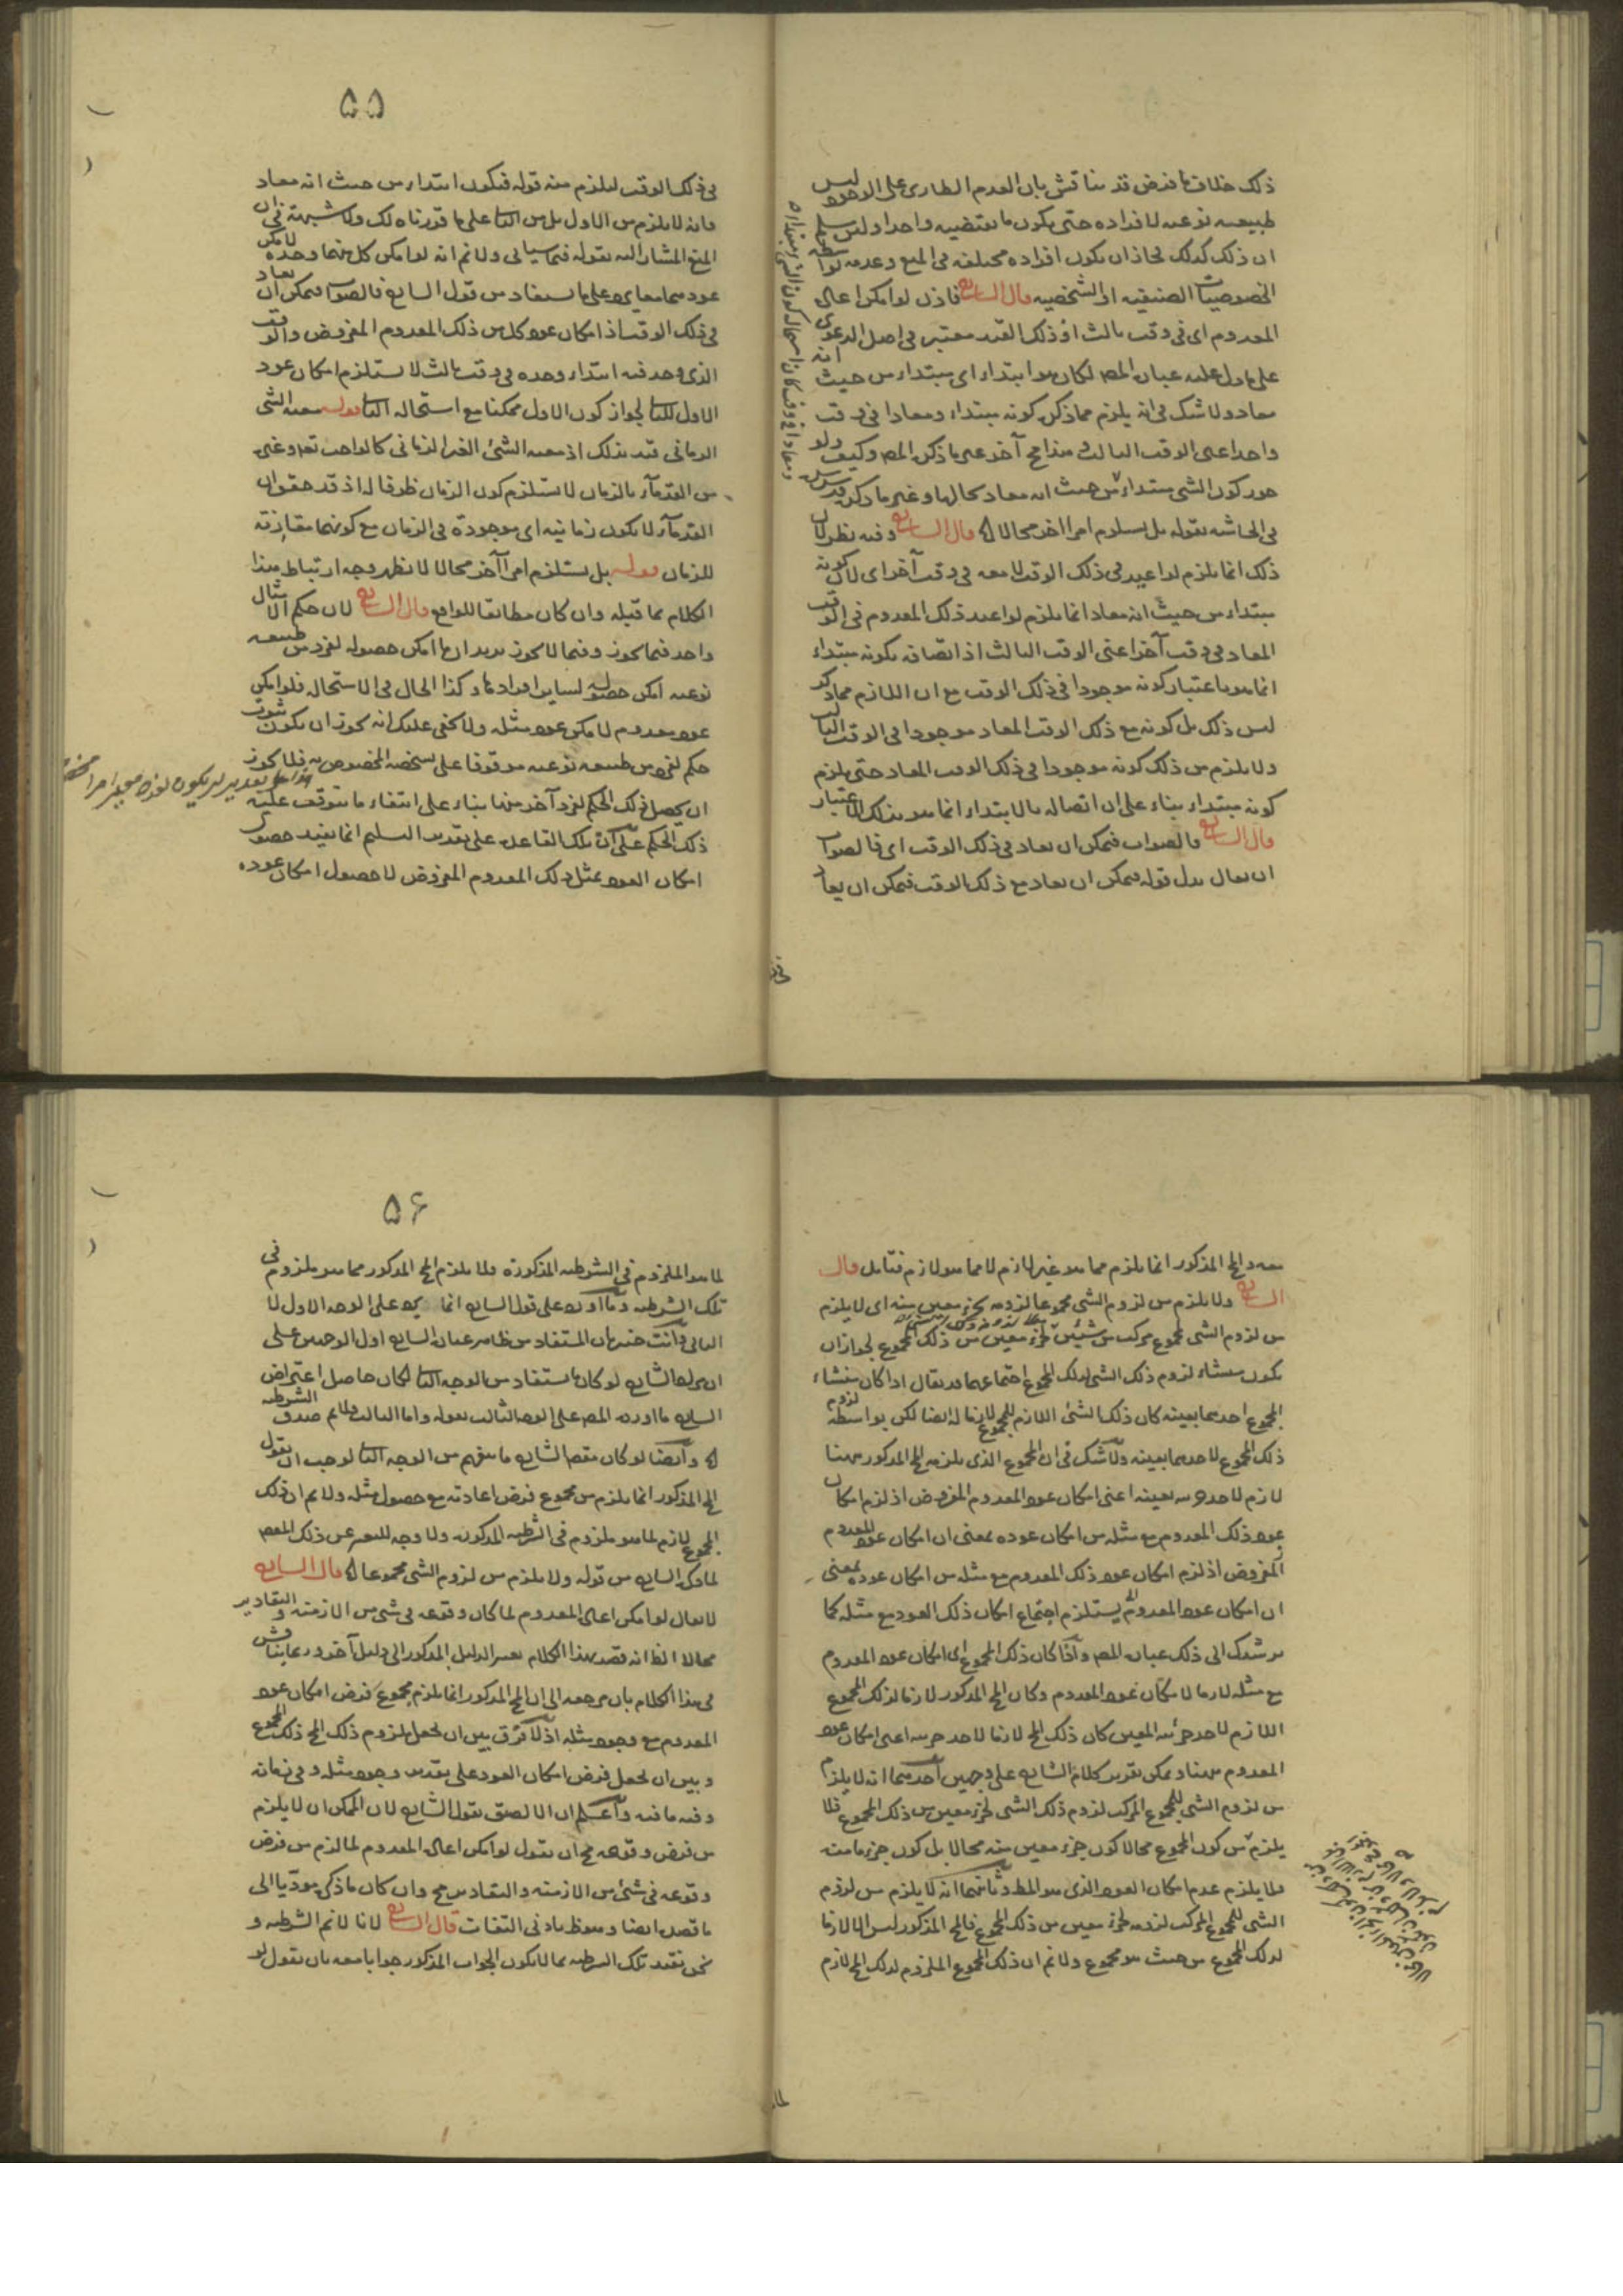 ذلك خلاف ما فرض قد يناقش بان العدم الطارى على الوجود ليس
طبيعه نوعيه لافراده حتى يكون ما تقتضيه واحدا وليس سلم
ان ذلك كذلك لجاز ان يكون افراده مختلفه فى المنع وعدمه لواسطه
الخصوصيات الصنفيه او الشخصيه قال الشارح فاذن لو امكن اعاده
المعدوم اى فى وقت ثالث اذ ذلك القيد معتبر فى اصل الدعوى
على ما دل عليه عباره المص لكان هو ابتداء اى مبتداء من حيث انه
معاد ولا شك فى انه يلزم مما ذكر كونه مبتداء ومعادا فى وقت
واحد اعنى الوقت الثالث وهذا مح آخر غير ما ذكر المص وكيف ولو
جوز كون الشى مبتداء من حيث انه معاد
فى الحاشيه بقوله بل يستلزم امرا آخر محالا اه قال الشارح وفيه نظر لان
ذلك انما يلزم لو اعيد فى ذلك الوقت لا معه فى وقت آخر اى لان كونه
مبتداء من حيث انه معاد انما يلزم لو اعيد ذلك المعدوم فى الوقت
المعاد فى وقت آخر اعنى الوقت الثالث اذ اتصافه بكونه مبتداء
انما هو باعتبار كونه موجودا فى ذلك الوقت مع ان اللازم مما ذكر
ليس ذلك بل كونه مع ذلك الوقت المعاد موجودا فى الوقت الثالث
ولا يلزم من ذلك كونه موجودا فى ذلك الوقت المعاد حتى يلزم
كونه مبتداء بناء على ان اتصافه بالابتداء انما هو بذلك الاعتبار
قال الشارح فالصواب فيمكن ان يعاد فى ذلك الوقت اى فالصواب
ان يقال بدل قوله فيمكن ان يعاد مع ذلك الوقت فيمكن ان يعاد
٥٥
فى ذلك الوقت ليلزم منه قوله فيكون ابتداء من حيث انه معاد
فانه لا يلزم من الاول بل من الثانى على ما قررناه لك ولا شبهة فى ان
المنع المشار اليه بقوله فيما سياتى ولا نم انه لو امكن كل منهما وحده لامكن
عودهما معا يرد على ما يستفاد من قول الشارح فالصواب فيمكن ان يعاد
فى ذلك الوقت اذ امكان عود كل من ذلك المعدوم المفروض والوقت
الذى وجد فيه ابتداء وحده فى وقت ثالث لا يستلزم امكان عود
الاول للثانى لجواز كون الاول ممكنا مع استحاله الثانى قوله معيه الشى
الزمانى قيد بذلك اذ معيه الشئ الغير الزمانى كالواجب تع وغيره
من القدمآء بالزمان لا يستلزم كون الزمان ظرفا له اذ قد حقق ان
القدمآء لا يكون زمانيه اى موجودة فى الزمان مع كونها مقارنة
للزمان قوله بل يستلزم امرا آخر محالا لا يظهر وجه ارتباط هذا
الكلام بما قبله وان كان مطابقا للواقع قال الشارح لان حكم الامثال
واحد فيما يجوز وفيما لا يجوز يريد ان ما امكن حصوله لفرد من طبيعه
نوعيه امكن حصوله لساير افرادها وكذا الحال فى الاستحاله فلو امكن
عود معدوم لامكن عود مثله ولا يخفى عليك انه يجوز ان يكون ثبوت
حكم لفرد من طبيعه نوعيه موقوفا على شخصه المخصوص به فلا يجوز
ان يحصل ذلك الحكم لفرد آخر منها بناء على انتفاء ما يتوقف عليه
ذلك الحكم على ان تلك القاعده على تقدير التسليم انما يفيد حصول
امكان العود لمثل ذلك المعدوم المفروض لا حصول امكان عوده
معه والمح المذكور انما يلزم مما هو غير لازم لا مما هو لازم فتامل قال
الشارح ولا يلزم من لزوم الشى مجموعا لزومه لجزء معين منه اى لا يلزم
من لزوم الشى لمجموع مركب من شيئين لجزء معين من ذلك المجموع لجواز ان
يكون منشاء لزوم ذلك الشى لذلك المجموع اجتماعهما قد يقال اذا كان منشاء
المجموع احدهما بعينه كان ذلك الشئ اللازم للمجموع لازما له ايضا لكن بواسطه لزوم
ذلك المجموع لاحدهما بعينه ولا شك فى ان المجموع الذى يلزمه المح المذكور ههنا
لازم لاحد جزئيه بعينه اعنى امكان عود المعدوم المفروض اذ لزم امكان
عود ذلك المعدوم مع مثله من امكان عوده بمعنى ان امكان عود المعدوم
المفروض اذ لزم امكان عود ذلك المعدوم مع مثله من امكان عوده بمعنى
ان امكان عود المعدوم يستلزم اجتماع امكان ذلك العود مع مثله كما
يرشدك الى ذلك عباره المص واذا كان ذلك المجموع اى امكان عود المعدوم
مع مثله لازما لامكان عود المعدوم وكان المح المذكور لازما لذلك المجموع
اللازم لاحد جزئيه المعين كان ذلك المح لازما لاحد جزئيه اعنى امكان عود
المعدوم ههنا ويمكن تقرير كلام الشارح على وجهين احدهما انه لا يلزم
من لزوم الشى للمجموع المركب لزوم ذلك الشى لجزء معين من ذلك المجموع فلا
يلزم من كون المجموع محالا كون جزء معين منه محالا بل كون جزء ما منه
فلا يلزم عدم امكان العود الذى هو المط وثانيهما انه لا يلزم من لزوم
الشى للمجموع المركب لزومه لجزء معين من ذلك المجموع فالمح المذكور ليس الا لازما
لذلك المجموع من حيث هو مجموع ولا نم ان ذلك المجموع الملزوم لذلك المح لازم
٥۶
لما هو الملزوم فى الشرطيه المذكورة فلا يلزم المح المذكور مما هو ملزوم فى
تلك الشرطيه وما اورده على قول الشارح انما يرد على الوجه الاول لا
الثانى وانت خبير بان المستفاد من ظاهر عباره الشارح اول الوجهين على
ان مراد الشارح لو كان ما يستفاد من الوجه الثانى لكان حاصل اعتراض
الشارح ما اورده المص على الوجه الثالث بقوله واما الثالث فلا نم صدق الشرطيه
اه وايضا لو كان مقصد الشارح ما يفهم من الوجه الثانى لوجب ان يقول
المح المذكور انما يلزم من مجموع فرض اعادته مع حصول مثله ولا نم ان ذلك
المجموع لازم لما هو ملزوم فى الشرطيه المذكوره ولا وجه للتعبير عن ذلك المقصد
لما ذكره الشارح من قوله ولا يلزم من لزوم الشى مجموعا اه قال الشارح
لا يقال لو امكن اعاده المعدوم لما كان وقوعه فى شى من الازمنه والتقادير
محالا الظ انه قصد بهذا الكلام تغيير الدليل المذكور الى دليل آخر وربما يناقش
فى هذا الكلام بان مرجعه الى ان المح المذكور انما يلزم مجموع فرض امكان عود
المعدوم مع وجود مثله اذ لا فرق بين ان نجعل ملزوم ذلك المح ذلك المجموع
وبين ان نجعل فرض امكان العود على تقدير وجود مثله وفى زمانه
وفيه ما فيه واعلم ان الاليق بقول الشارح لان الممكن ان لا يلزم
من فرض وقوعه مح ان يقول لو امكن اعاده المعدوم لما لزم من فرض
وقوعه فى شئ من الازمنه والتقادير مح وان كان ما ذكره مودّيا الى
ما قصد ايضا وهو ظ بادنى التفات قال الشارح لانا لا نم الشرطيه و
نحن نقيد تلك الشرطيه بما لا يكون الجواب المذكور جوابا معه بان نقول لو